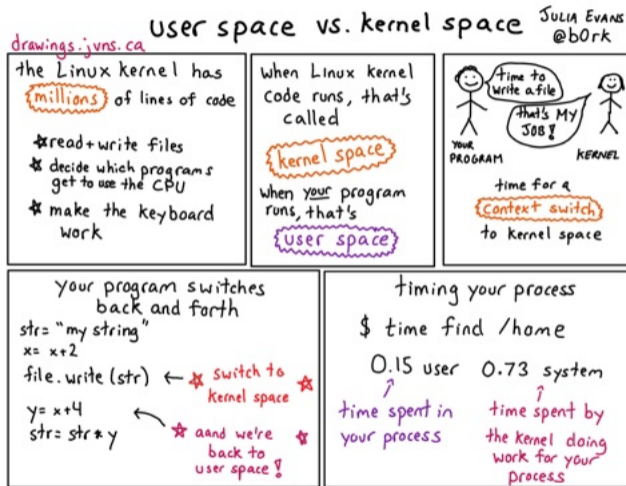 user space vs. kernel space
JULIA EVANS
@b0rk
drawings.jvns.ca
the Linux kernel has
millions of lines of code
☆read+write files
☆ decide which programs
get to use the CPU
☆ make the keyboard
work
when Linux kernel
code runs, that's
called
kernel space
when your program
runs, that's
user space
time to
write a file
that's MY
JOB!
YOUR
PROGRAM
KERNEL
time for a
context switch
to kernel space
your program switches
back and forth
str= "my string"
x= x+2
file.write(str) ← ☆ switch to
kernel space ☆
y= x+4
str= str*y
☆ aand we're ☆
back to
user space!
timing your process
$ time find /home
0.15 user 0.73 system
time spent in
your process
time spent by
the kernel doing
work for your
process